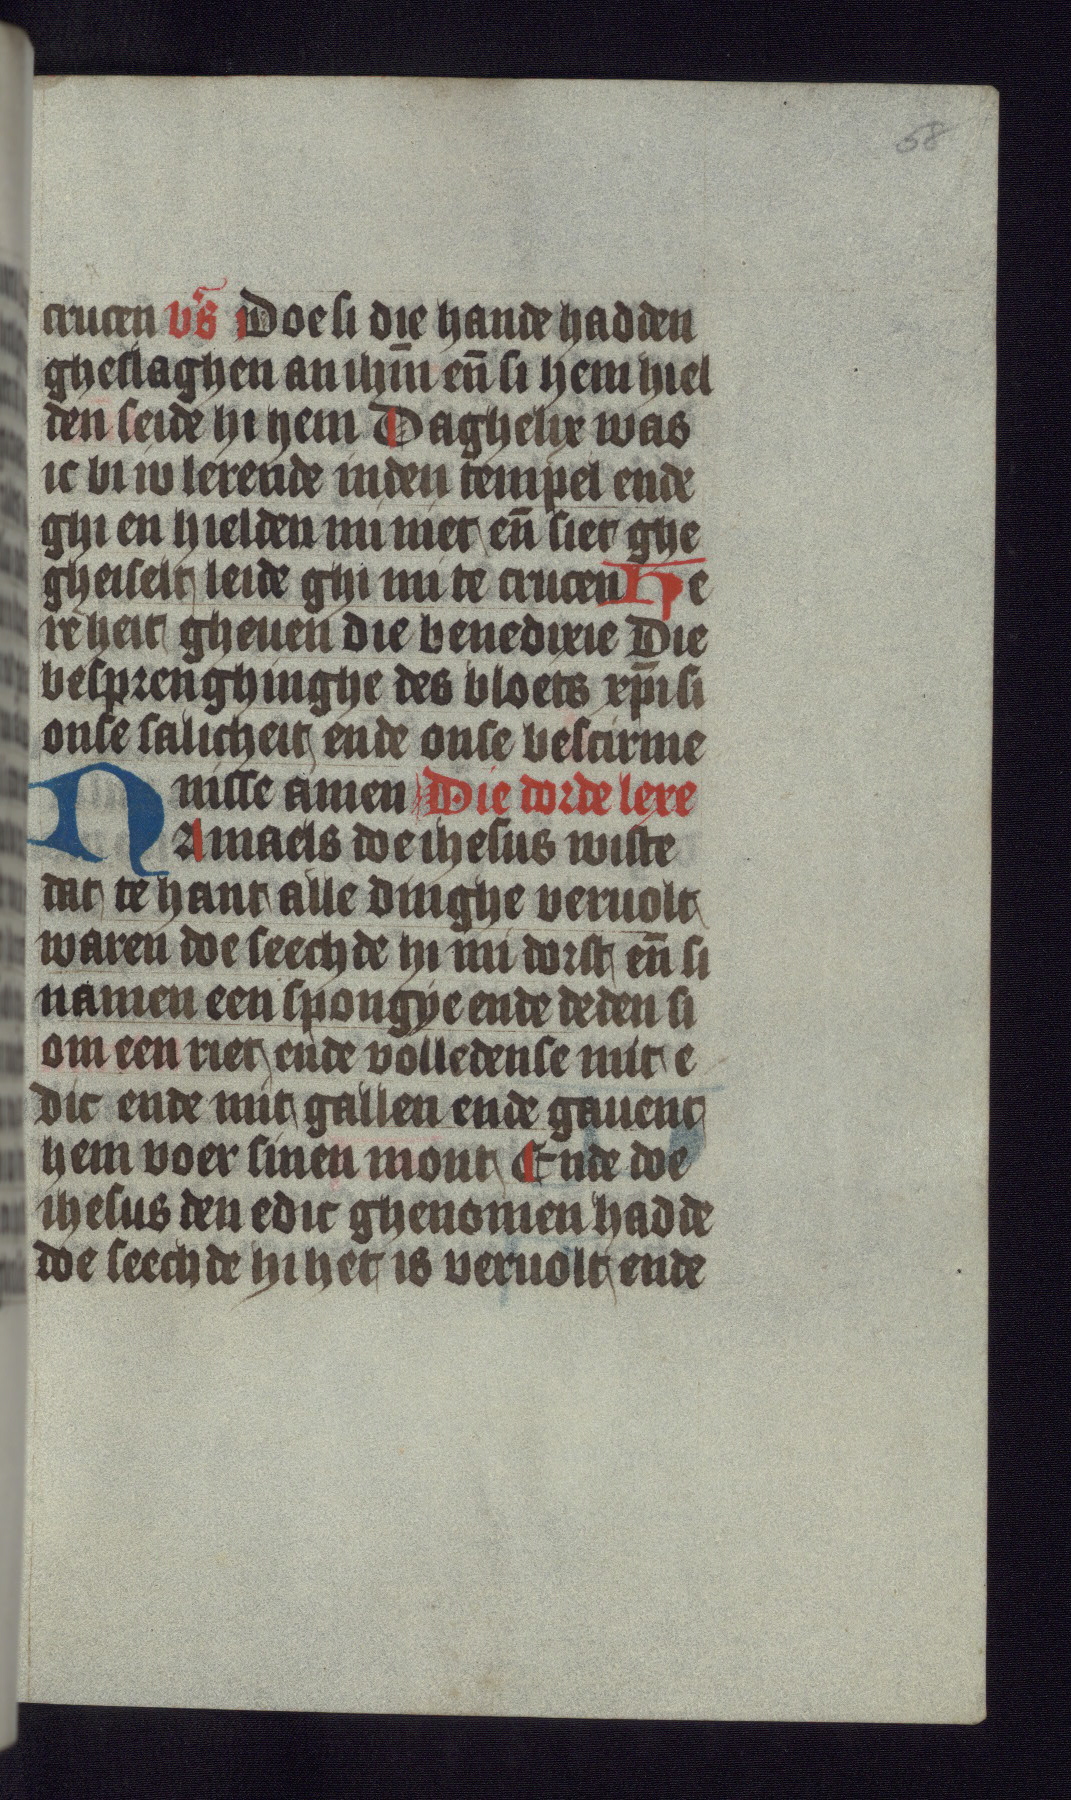 58
crucen vs̄ Doe si die hande hadden
gheslaghen an ihm̄ eñ si hem hiel
den seide hi hem Daghelix was
ic bi iv lerende inden tempel ende
ghi en hielden mi niet eñ siet ghe
gheiselt leide ghi mi te crucen He
re heit gheuen die benedixie Die
besprenghinghe des bloets xp̄i si
onse salicheit ende onse bescirme
nisse amen Die dorde lere
Namaels doe ihesus wiste
dat te hant alle dinghe veruolt
waren doe seechde hi mi dorst eñ si
namen een spongye ende deden si
om een riet ende volledense mit e
dic ende mit gallen ende gauent
hem voer sinen mont Ende doe
ihesus den edic ghenomen hadde
doe seechde hi het is veruolt ende